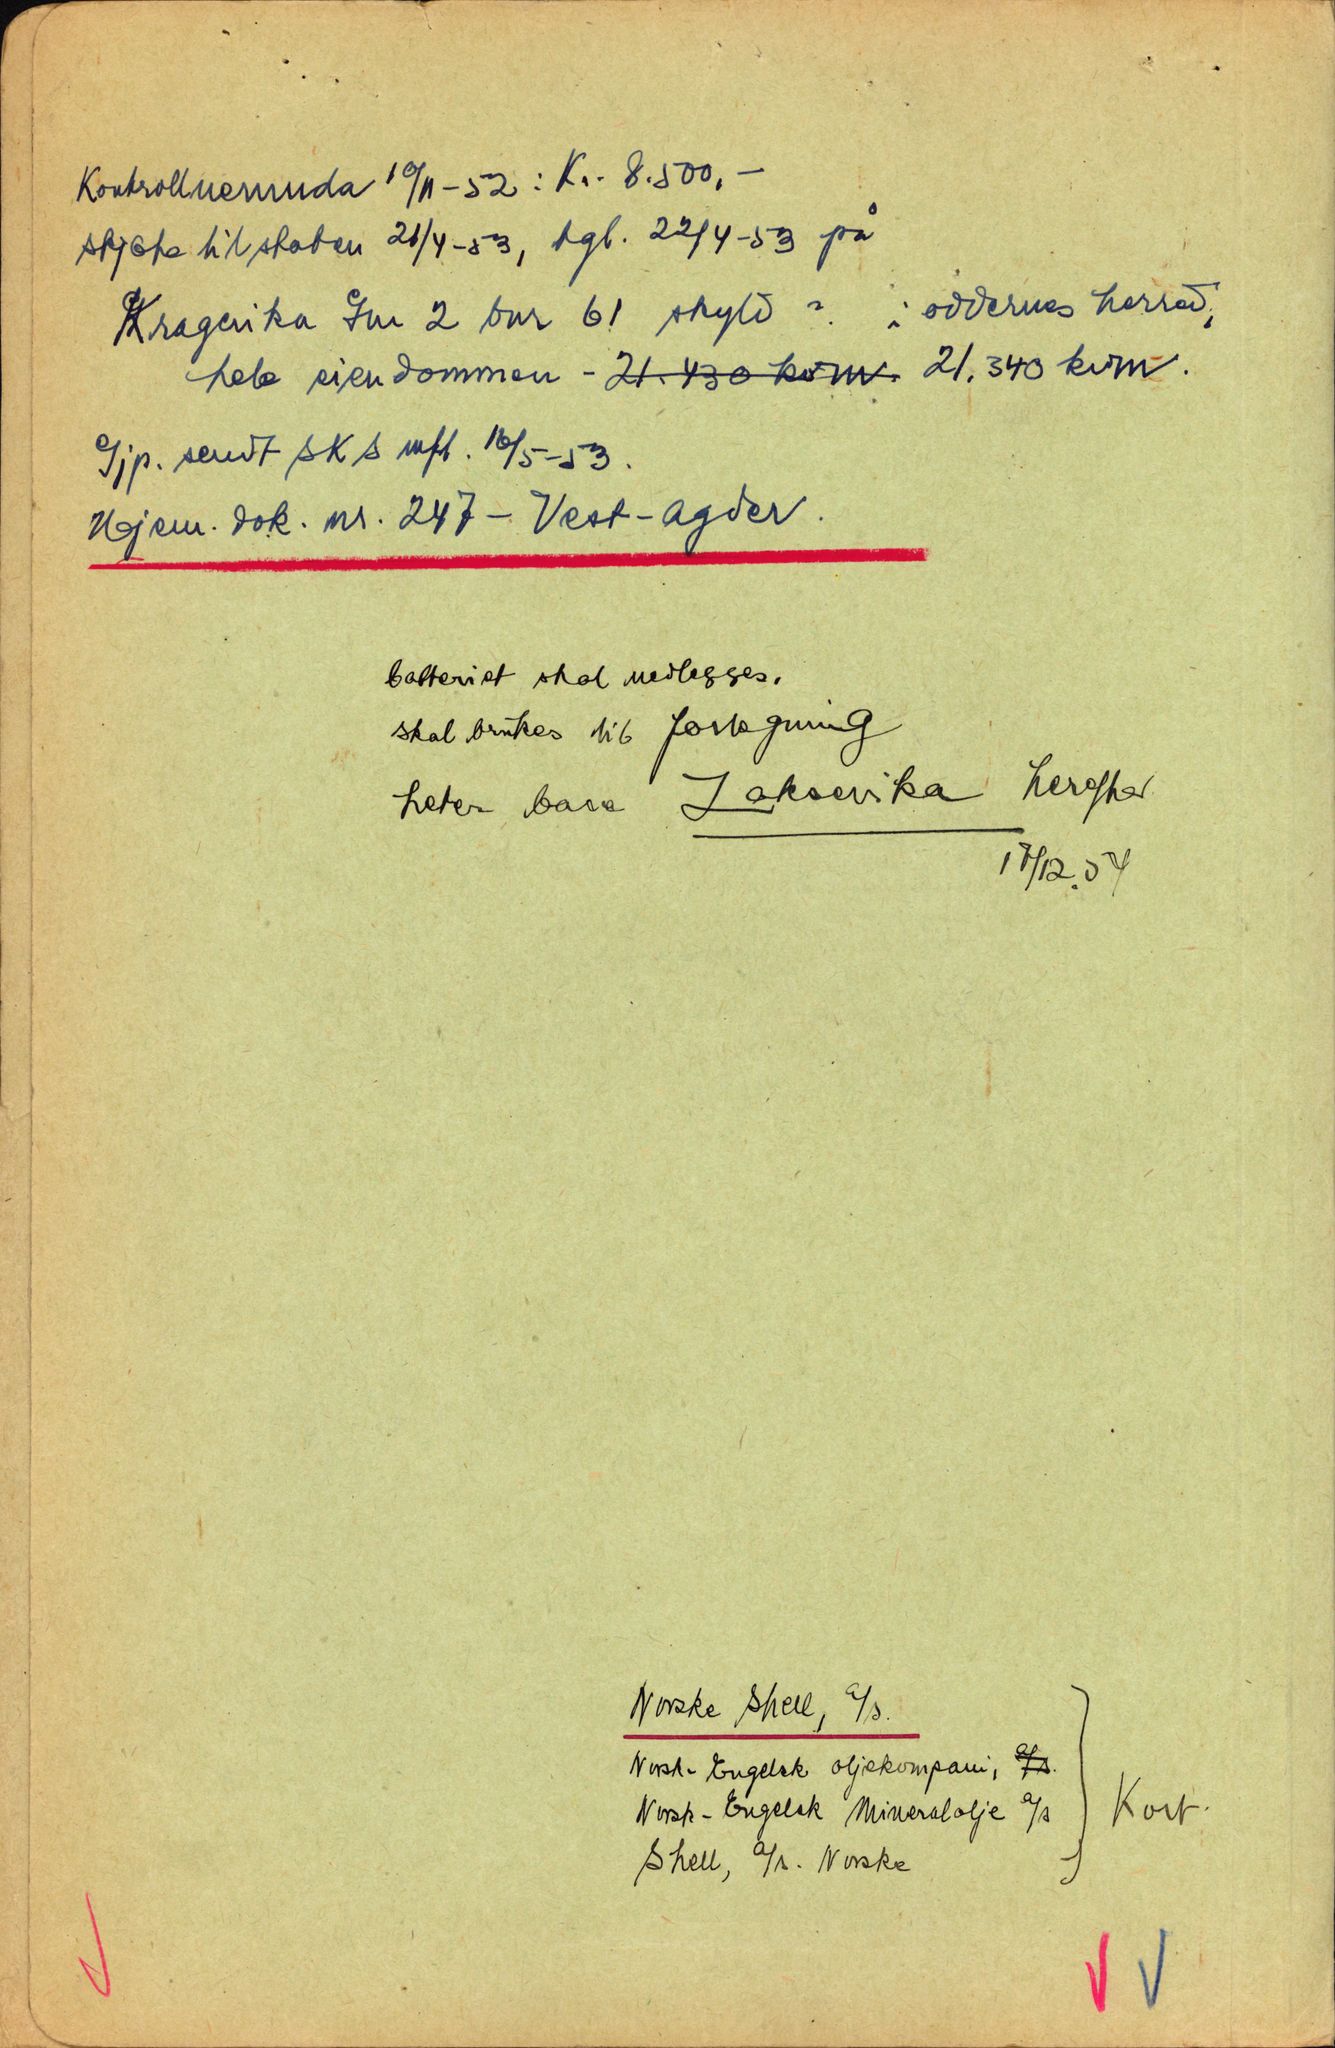 Kontrollnemnda 10/11-52: Kr. 8.500,-
skjøte til staten 21/4-53, tgl. 22/4-53 på
Kragevika Gnr 2 bnr 61 skyld ? i Oddernes herred,
hele eiendommen - 21.430 kvm. 21.340 kvm.
Gjp. sendt SKS mfl. 16/5-53.
Hjem. dok. nr. 247 - Vest-Agder.
batteriet skal nedlegges.
skal brukes til fortøyning
heter bare Laksevika herefter
17/12.54
Norske Shell, a/s.
Norsk-Engelsk oljekompani, a/s.
Norsk-Engelsk Mineralolje a/s
Shell, a/s. Norske
Kort.